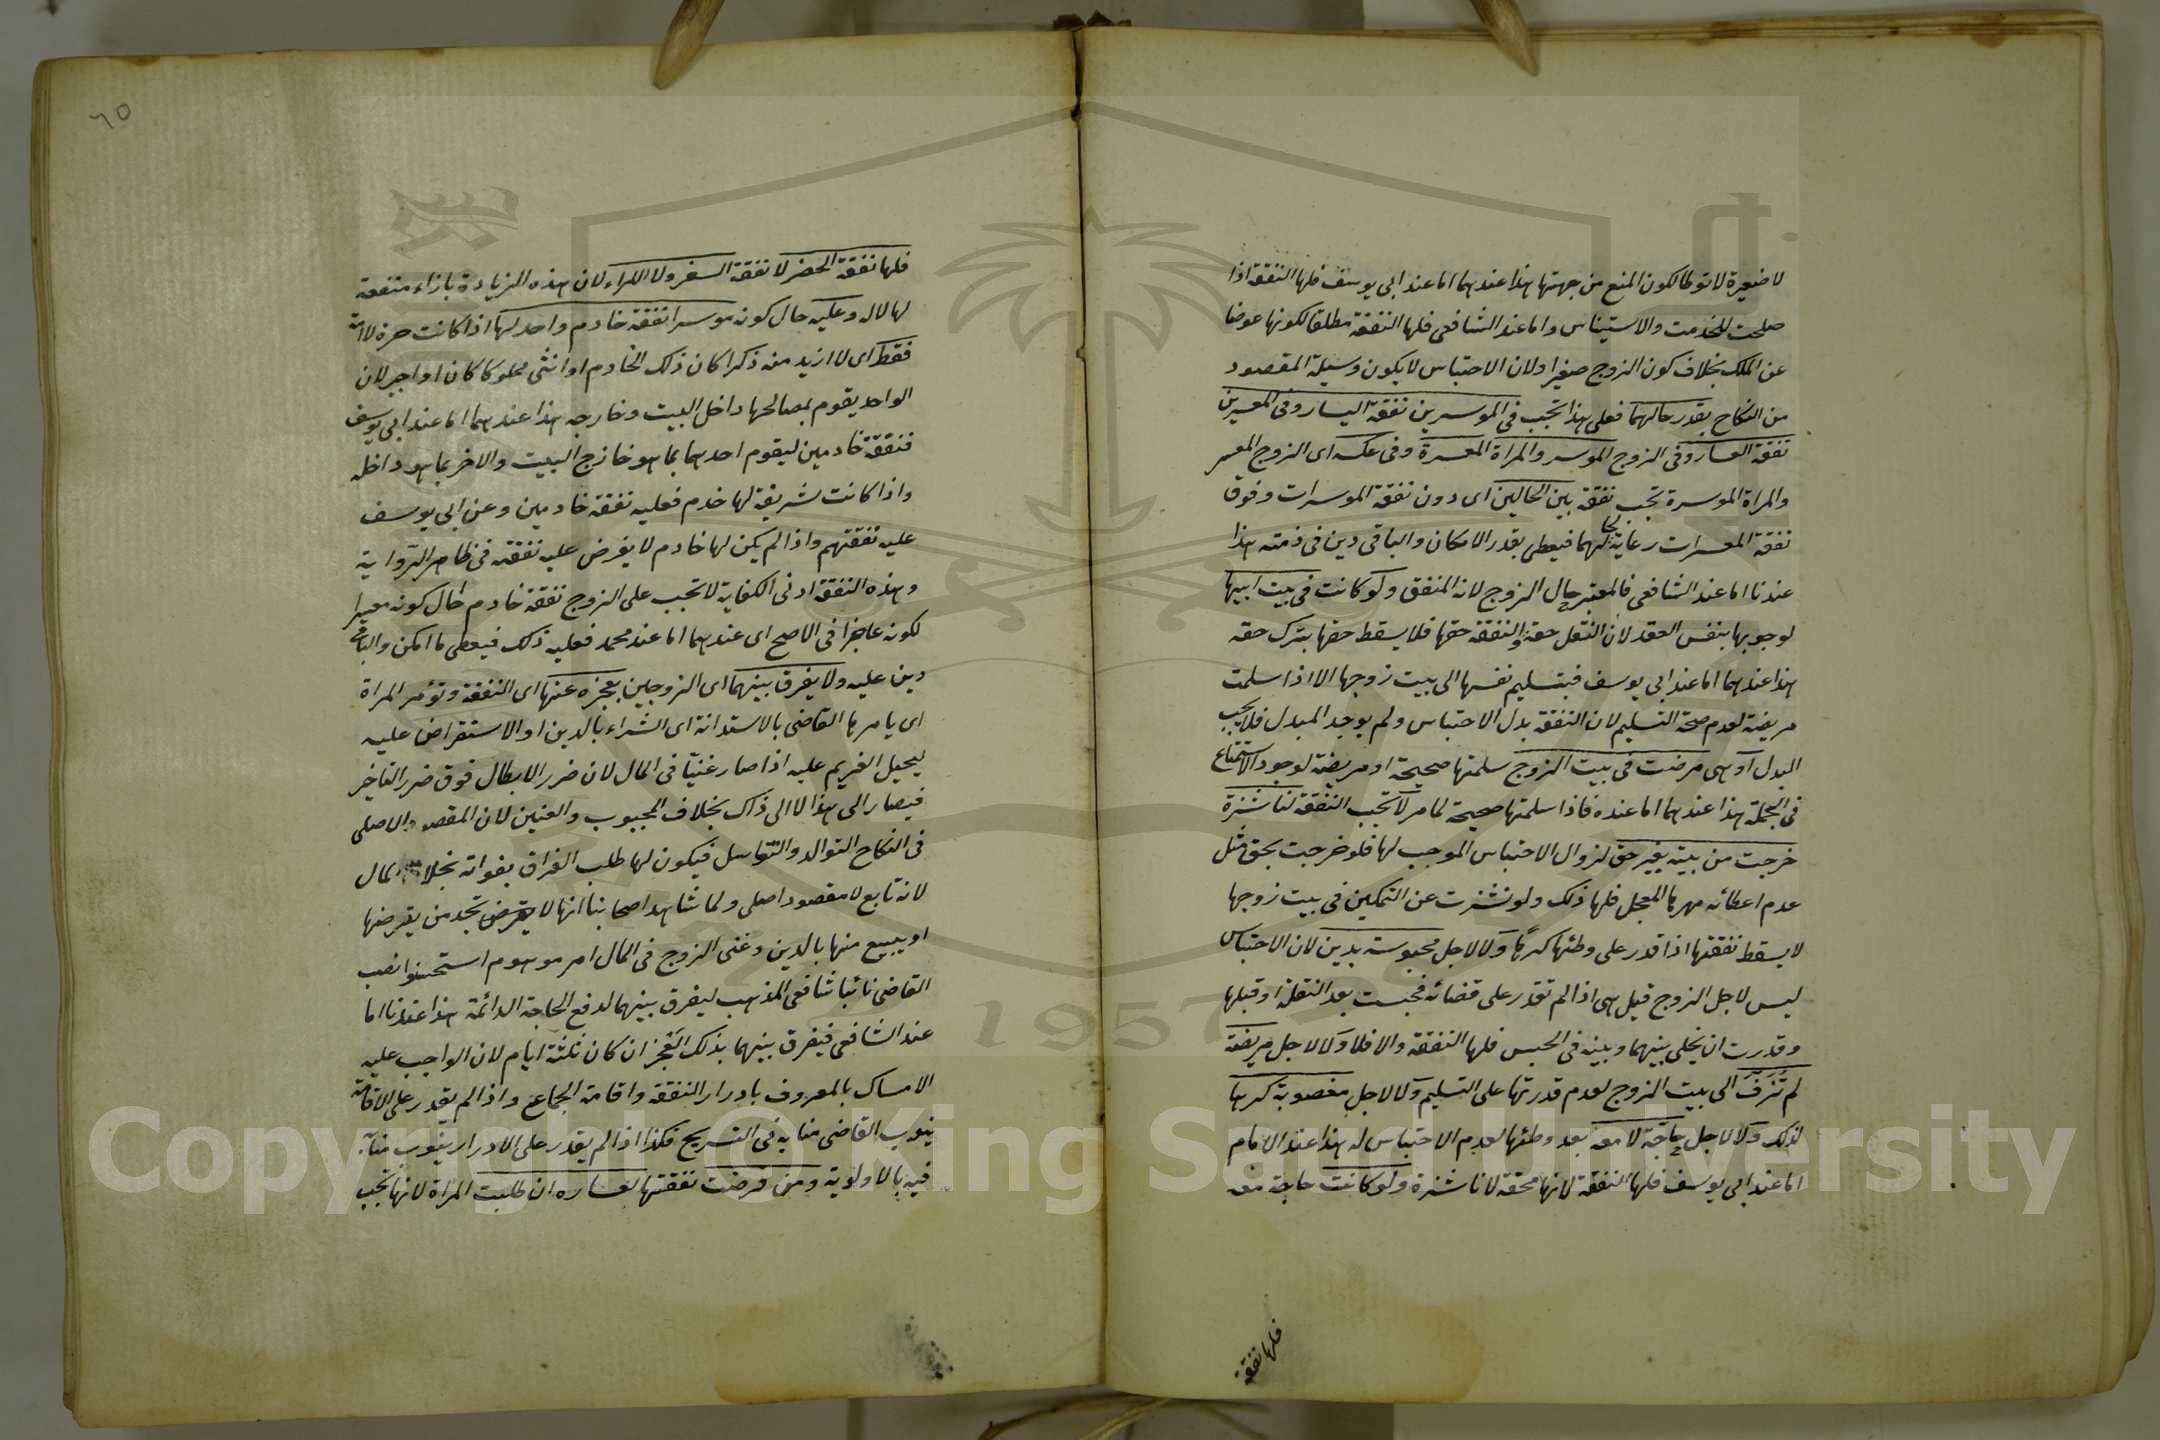 لا صغيرة لا توطا لكون المنع من جهتها هذا عندهما اما عند ابي يوسف فلها النفقة اذا
صلحت للخدمت والاستيناس واما عند الشافعي فلها النفقة مطلقا لكونها عوضا
عن الملك بخلاف كون الزوج صغيرا ولان الاحتباس لا يكون وسيلة المقصود
من النكاح بقدر حالهما فعلى هذا تجب في الموسرين نفقة اليسار وفي المعسرين
نفقة العسار وفي الزوج الموسر والمراة المعسرة وفي عكسه اى الزوج المعسر
والمراة الموسرة تجب نفقة بين الحالين اى دون نفقة الموسرات وفوق
نفقة المعسرات رعاية لحالهما فيعطى بقدر الامكان والباقى دين في ذمته هذا
عندنا اما عند الشافعي فالمعتبر حال الزوج لانه المنفق ولو كانت في بيت ابيها
لوجوبها بنفس العقد لان النقل حقه والنفقة حقها فلا يسقط حقها بترك حقه
هذا عندهما اما عند ابي يوسف فبتسليم نفسها الى بيت زوجها الا اذا سلمت
مريضة لعدم صحة التسليم لان النفقة بدل الاحتباس ولم يوجد المبدل فلا يجب
البدل او هى مرضت في بيت الزوج سلمتها صحيحة او مريضة لوجود الاستمتاع
في الجملة هذا عندهما اما عنده فاذا سلمتها صحيحة لما مر لا تجب النفقة لناشزة
خرجت من بيته بغير حق لزوال الاحتباس الموجب لها فلو خرجت بحق مثل
عدم اعطائه مهرها المعجل فلها ذلك ولو نشزت عن التمكين في بيت زوجها
لا يسقط نفقتها اذا قدر على وطئها كرها ولا لاجل محبوسة بدين لان الاحتباس
ليس لاجل الزوج قيل هى اذا لم تقدر على قضائه فحبست بعد النقلة او قبلها
وقدرت ان يخلى بينهما وبينه في الحبس فلها النفقة والا فلا ولا لاجل مريضة
لم تزف الى بيت الزوج لعدم قدرتها على التسليم ولا لاجل مغصوبة كرها
لذلك ولا لاجل حاجة لا معه بعد وطئها لعدم الاحتباس له هذا عند الامام
اما عند ابي يوسف فلها النفقة لانها محقة لا ناشزة ولو كانت حاجة معه
فلها نفقة
٦٥
فلها نفقة الحضر لا نفقة السفر ولا الكراء لان هذه الزيادة بازاء منفعة
لها لا له وعليه حال كونه موسرا نفقة خادم واحد لها اذا كانت حرة لا امة
فقط اى لا ازيد منه ذكرا كان ذلك الخادم او انثى مملوكا كان او اجيرا لان
الواحد يقوم بمصالحها داخل البيت وخارجه هذا عندهما اما عند ابي يوسف
فنفقة خادمين ليقوم احدهما بما هو خارج البيت والاخر بما هو داخله
واذا كانت شريفة لها خدم فعليه نفقة خادمين وعن ابي يوسف
عليه نفقتهم واذا لم يكن لها خادم لا يفرض عليه نفقته في ظاهر الرواية
وهذه النفقة ادنى الكفاية لا تجب على الزوج نفقة خادم حال كونه معسرا
لكونه عاجزا في الاصح اى عندهما اما عند محمد فعليه ذلك فيعطى ما امكن والباقى
دين عليه ولا يفرق بينهما اى الزوجين بعجزه عنها اى النفقة وتؤمر المراة
اى يامرها القاضى بالاستدانة اى الشراء بالدين او الاستقراض عليه
ليحيل الغريم عليه اذا صار غنيا في المال لان ضرر الابطال فوق ضرر التاخير
فيصار الى هذا لا الى ذاك بخلاف المجبوب والعنين لان المقصود الاصلى
في النكاح التوالد والتناسل فيكون لها طلب الفراق بفواته بخلاف المال
لانه تابع لا مقصود اصلى ولما شاهد اصحابنا انها لا تجد من يقرضها
او يبيع منها بالدين وغنى الزوج في المال امر موهوم استحسنوا نصب
القاضى نائبا شافعى المذهب ليفرق بينهما لدفع الحاجة الدائمة هذا عندنا اما
عند الشافعي فيفرق بينهما بذلك العجز ان كان ثلثة ايام لان الواجب عليه
الامساك بالمعروف بادرار النفقة واقامة الجماع واذا لم يقدر على الاقامة
ينوب القاضى منابه في التسريح فكذا اذا لم يقدر على الادرار ينوب منابه
فيه بالاولوية ومن فرضت نفقتها لعساره ان طلبت المراة لانها تجب
Copyright © King Saud University
1957